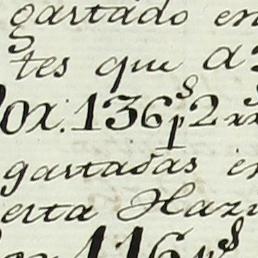 gastado en
tes que a
Por. 136 ps 2
gastadas en
esta Hazi
116 ps